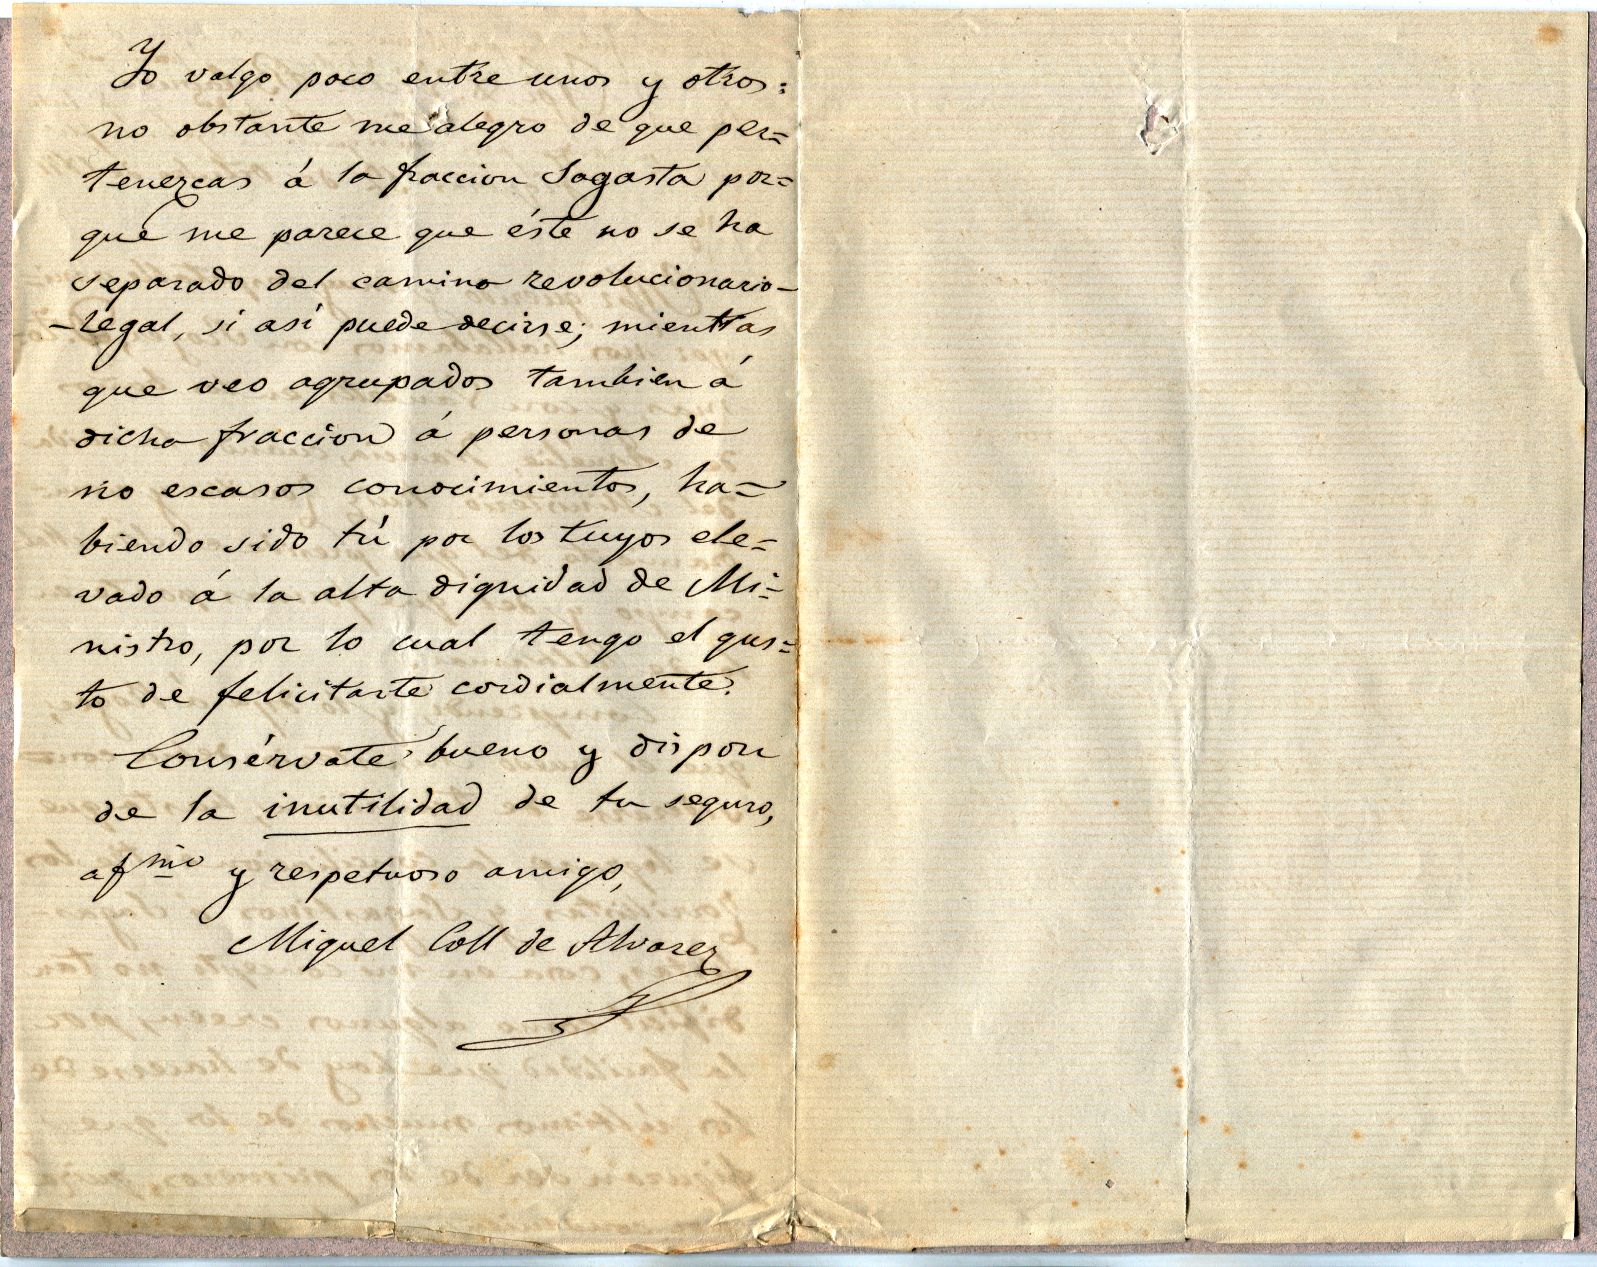 Yo valgo poco entre unos y otros:
no obstante me alegro de que per=
tenezcas á la fraccion Sagasta por=
que me parece que éste no se ha
separado del camino revolucionario-
-legal, si así puede decirse; mientras
que veo agrupados tambien á
dicha fraccion á personas de
no escasos conocimientos, ha=
biendo sido tú por los tuyos ele=
vado á la alta dignidad de Mi=
nistro, por lo cual tengo el gus=
to de felicitarte cordialmente.
Consérvate bueno y dispon
de la inutilidad de tu seguro,
afmo y respetuoso amigo,
Miguel Coll de Alvarez